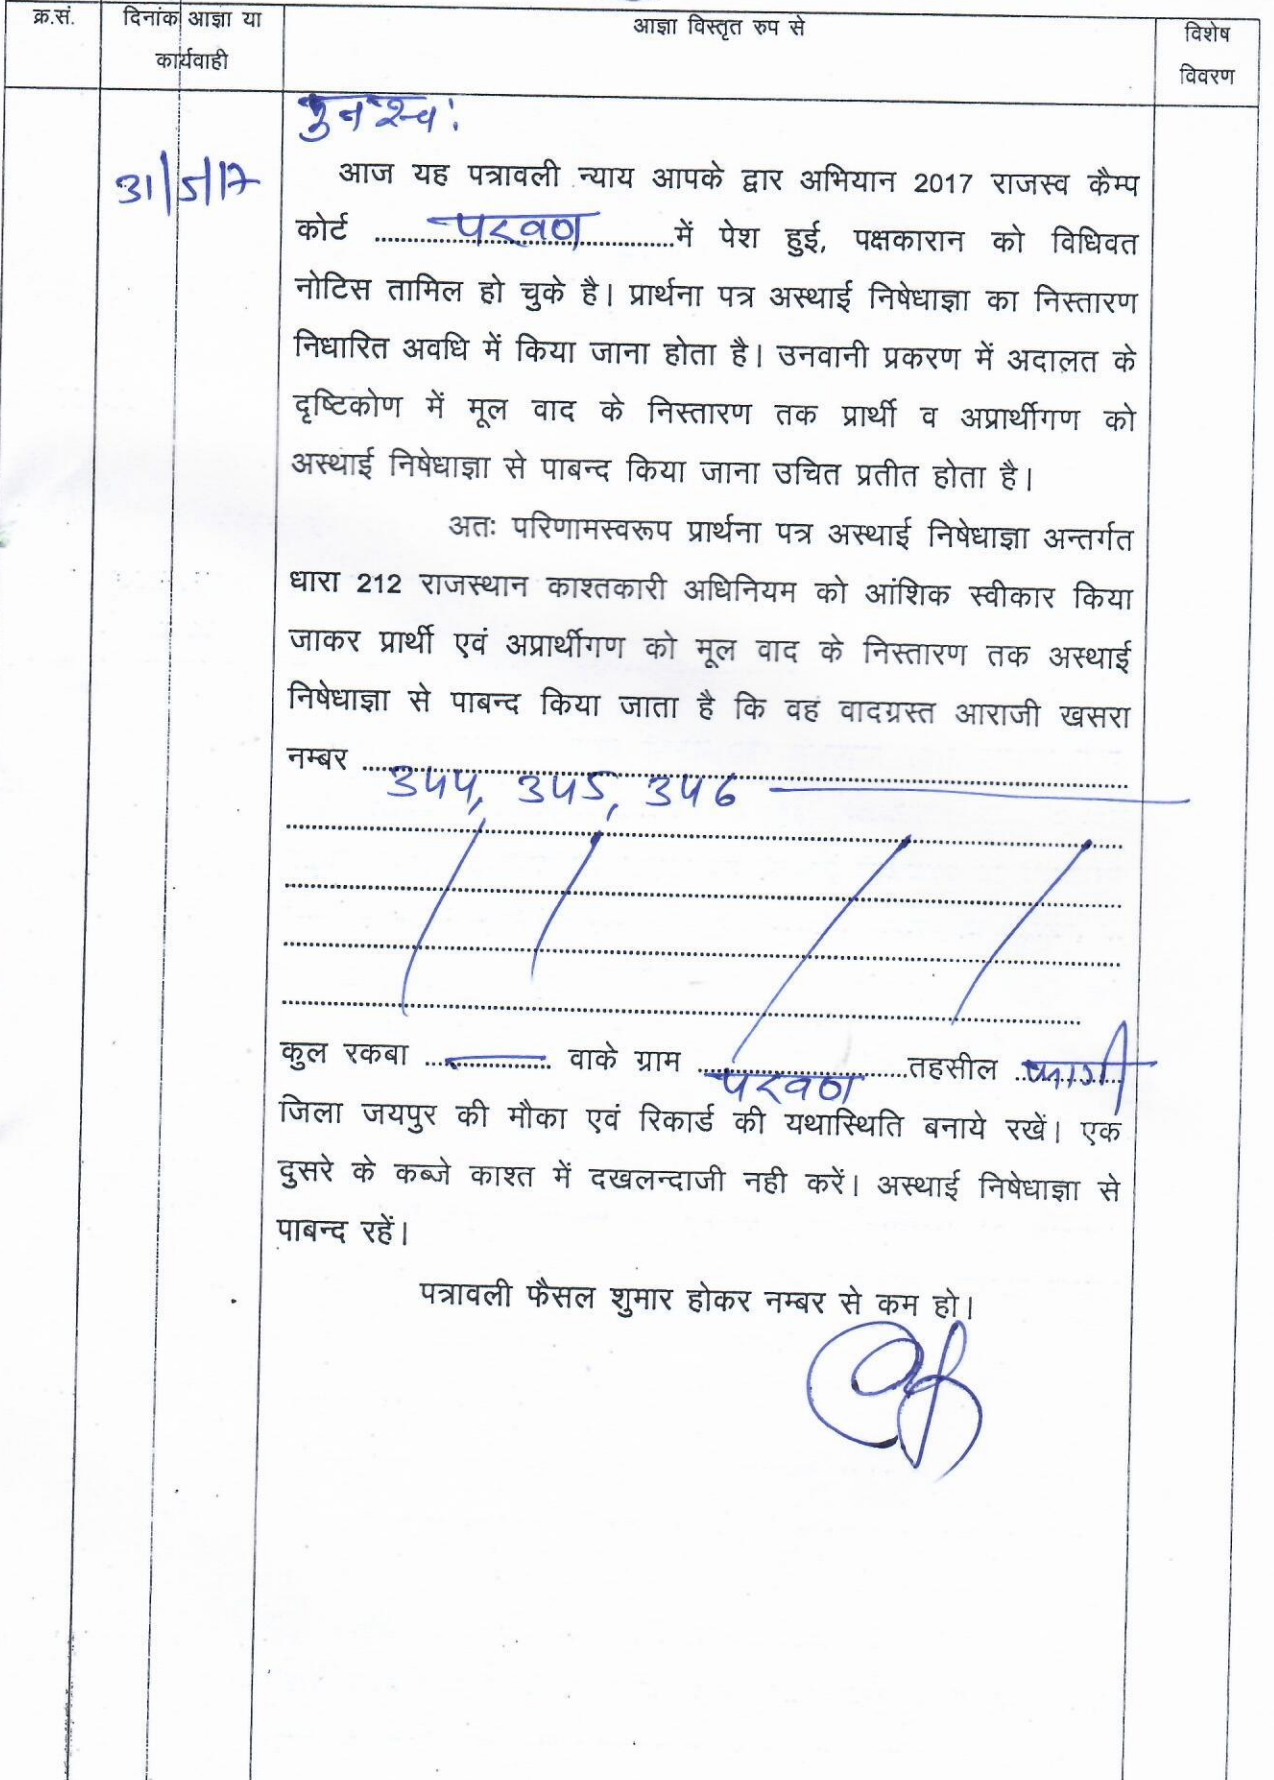 क्र.सं.
दिनांक आज्ञा या
कार्यवाही
आज्ञा विस्तृत रुप से
विशेष
विवरण
पुनश्च:
31/5/17
आज यह पत्रावली न्याय आपके द्वार अभियान 2017 राजस्व कैम्प
कोर्ट ........परवण........में पेश हुई, पक्षकारान को विधिवत
नोटिस तामिल हो चुके है। प्रार्थना पत्र अस्थाई निषेधाज्ञा का निस्तारण
निधारित अवधि में किया जाना होता है। उनवानी प्रकरण में अदालत के
दृष्टिकोण में मूल वाद के निस्तारण तक प्रार्थी व अप्रार्थीगण को
अस्थाई निषेधाज्ञा से पाबन्द किया जाना उचित प्रतीत होता है।
अतः परिणामस्वरूप प्रार्थना पत्र अस्थाई निषेधाज्ञा अन्तर्गत
धारा 212 राजस्थान काश्तकारी अधिनियम को आंशिक स्वीकार किया
जाकर प्रार्थी एवं अप्रार्थीगण को मूल वाद के निस्तारण तक अस्थाई
निषेधाज्ञा से पाबन्द किया जाता है कि वह वादग्रस्त आराजी खसरा
नम्बर ........344, 345, 346
कुल रकबा ........ वाके ग्राम ........परवण........तहसील ........फागी
जिला जयपुर की मौका एवं रिकार्ड की यथास्थिति बनाये रखें। एक
दुसरे के कब्जे काश्त में दखलन्दाजी नही करें। अस्थाई निषेधाज्ञा से
पाबन्द रहें।
पत्रावली फैसल शुमार होकर नम्बर से कम हो।